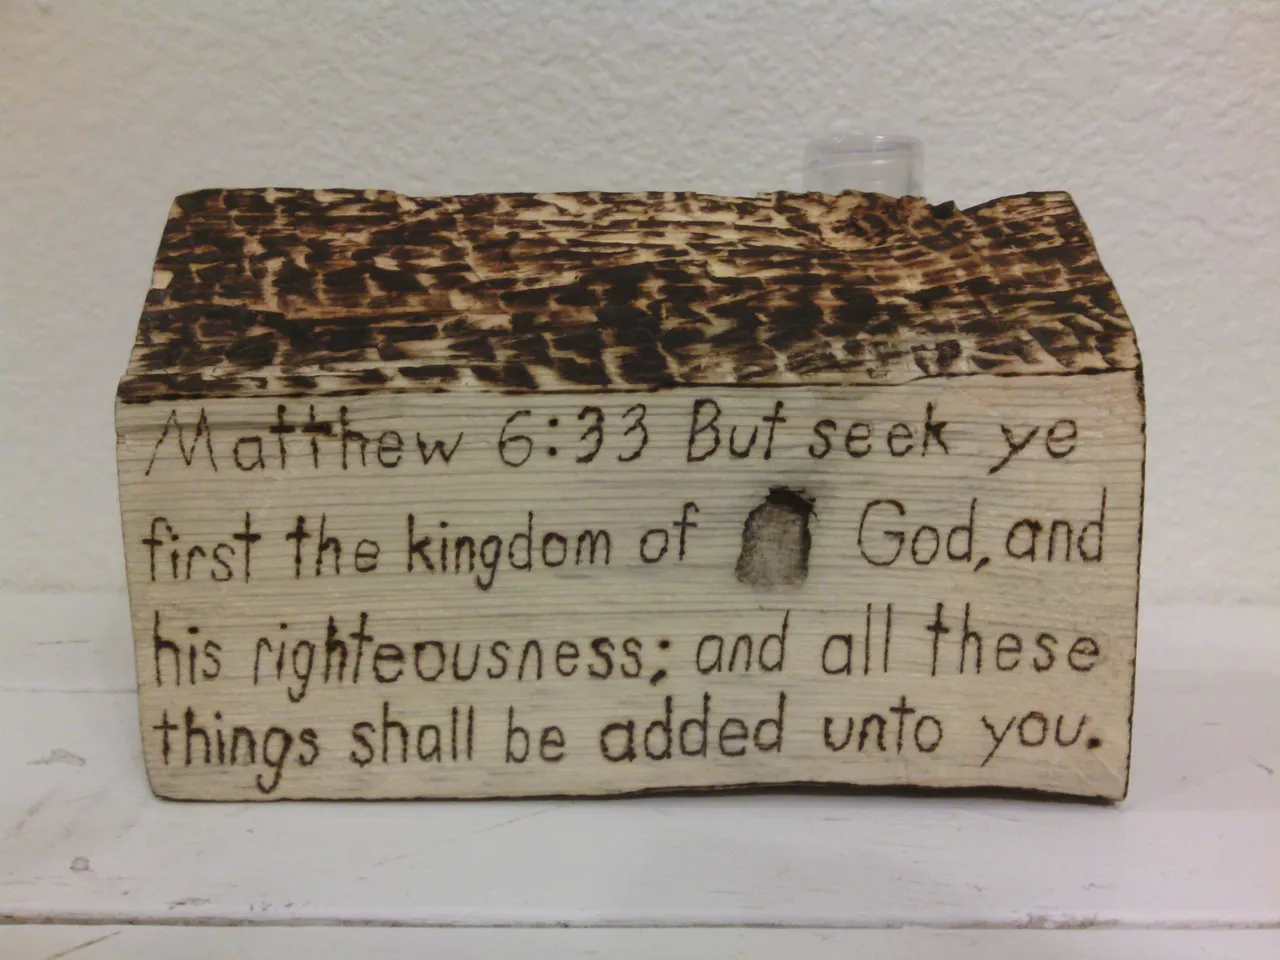 Matthew 6:33 But seek ye
first the kingdom of God, and
his righteousness; and all these
things shall be added unto you.